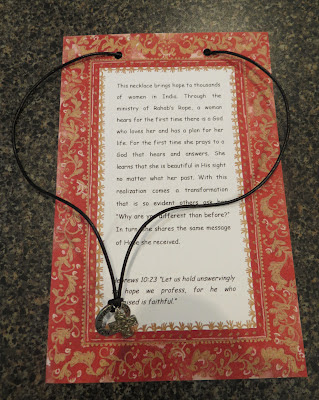 This necklace brings hope to thousands
of women in India. Through the
ministry of Rahab's Rope, a woman
hears for the first time there is a God
who loves her and has a plan for her
life. For the first time she prays to a
God that hears and answers. She
learns that she is beautiful in His sight
no matter what her past. With this
realization comes a transformation
that is so evident others ask her
"Why are you different than before?"
In turn she shares the same message
of Hope she received.
Hebrews 10:23 "Let us hold unswervingly
hope we profess, for he who
is faithful."